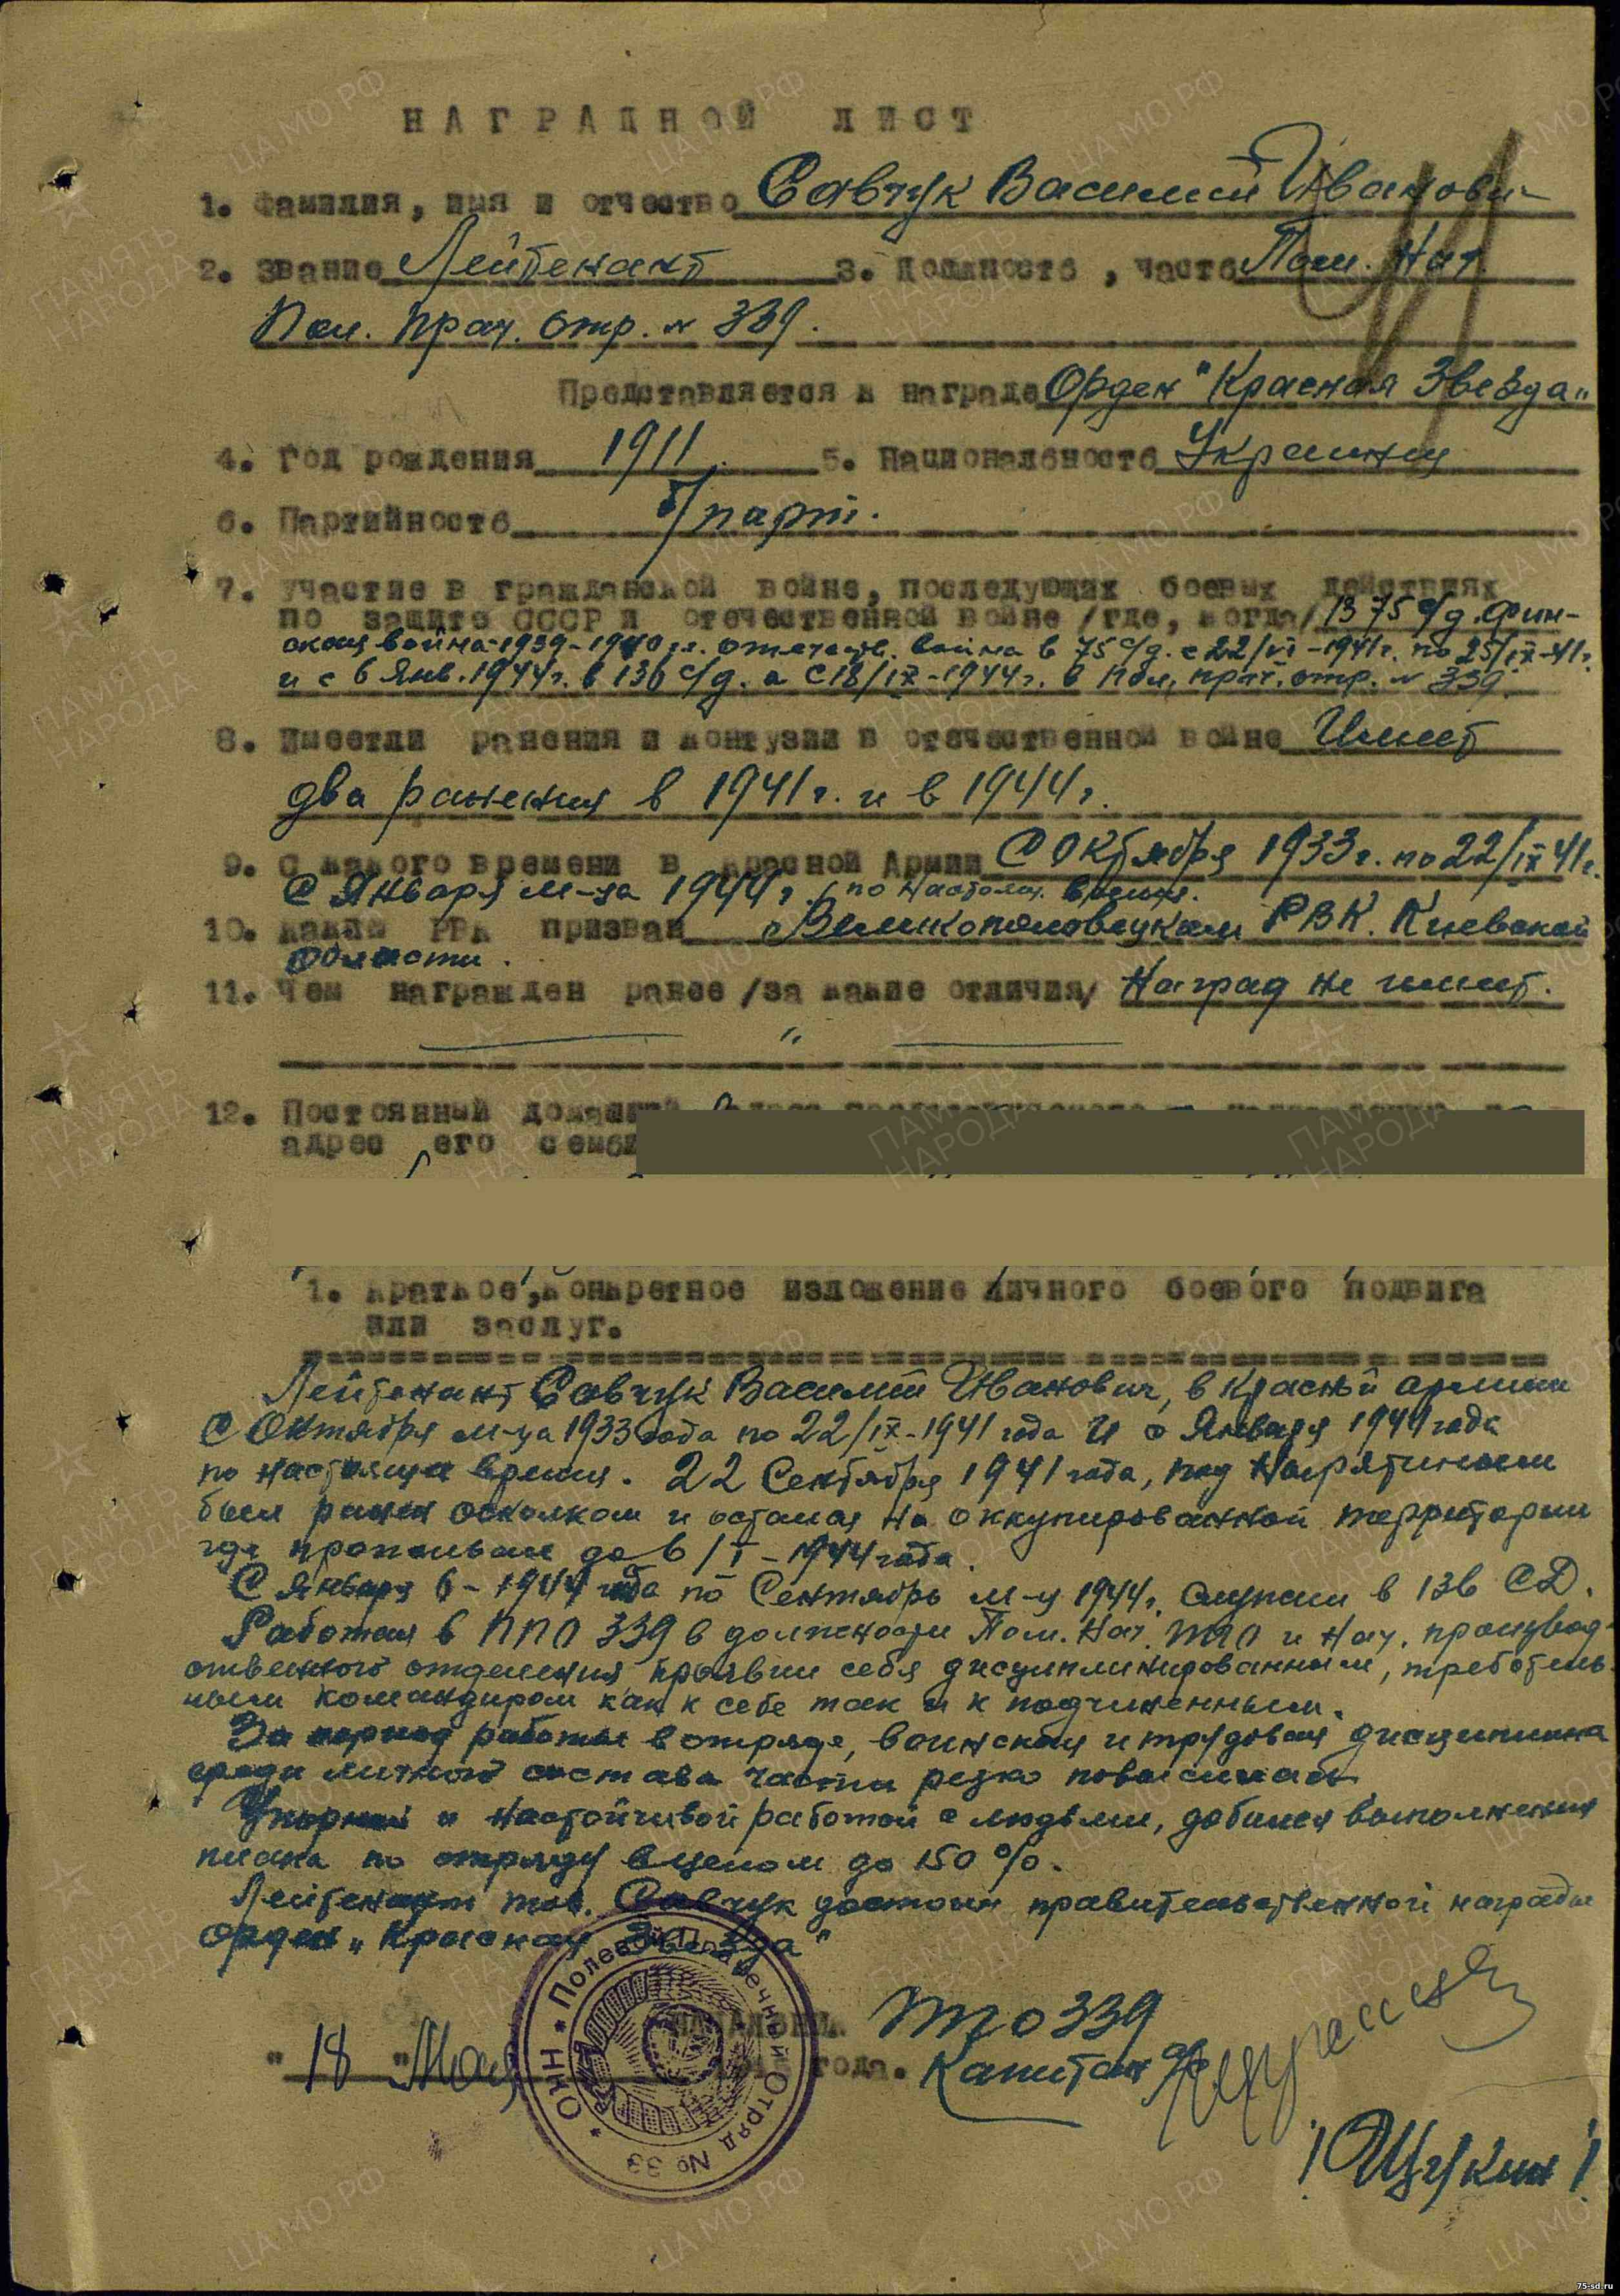 НАГРАДНОЙ ЛИСТ
1. Фамилия, имя и отчество Савчук Василий Иванович
2. Звание Лейтенант 3. Должность, часть Пом. Нач.
Пол. Прач. Отр. № 339.
Представляется к награде Орден "Красная Звезда"
4. Год рождения 1911. 5. Национальность Украинец
6. Партийность б/парт.
7. Участие в гражданской войне, последующих боевых действиях
по защите СССР и отечественной войне /где, когда/ В 75 с/д. Фин-
ская война-1939-1940 г.г. отечеств. война в 75 с/д. с 22/VI-1941г. по 25/IX-41г.
и с 6 Янв. 1944г. в 136 с/д. а с 18/IX-1944г. в Пол. прач. отр. № 339.
8. Имеет ли ранения и контузии в отечественной войне Имеет
два ранения в 1941г. и в 1944г.
9. С какого времени в Красной Армии С Октября 1933г. по 22/IX 41г.
С Января м-ца 1944г. по настоящ. время.
10. Каким РВК призван Великополовецким РВК. Киевской
области.
11. Чем награжден ранее /за какие отличия/ Наград не имеет.
"
12. Постоянный домашний
адрес его семьи
1. Краткое, конкретное изложение личного боевого подвига
или заслуг.
Лейтенант Савчук Василий Иванович, в Красной армии
С Октября м-ца 1933 года по 22/IX-1941 года и с Января 1944 года
по настояще время. 22 Сентября 1941 года, под
был ранен осколком и остался на оккупированной территории
где проживал до 6/I-1944 года.
С Января 6-1944 года по Сентябрь м-ц 1944г. служил в 136 СД.
Работая в ППО 339 в должности Пом. Нач. ППО и Нач. производ-
ственного отделения проявил себя дисциплинированным, требователь-
ным командиром как к себе так и к подчиненным.
За период работы в отряде, воинская и трудовая дисциплина
среди личного состава части резко повысилась
Упорной и настойчивой работой с людьми, добился выполнения
плана по отряду в целом до 150%.
Лейтенант тов. Савчук достоин правительственной награды
орден "Красная Звезда"
НАЧАЛЬНИК ППО 339
"18" Мая 1945 года. Капитан
/Щукин/
* Полевой Прачечный Отряд № 33 * ОКН
75-sd.ru
ПАМЯТЬ НАРОДА
ЦА МО РФ